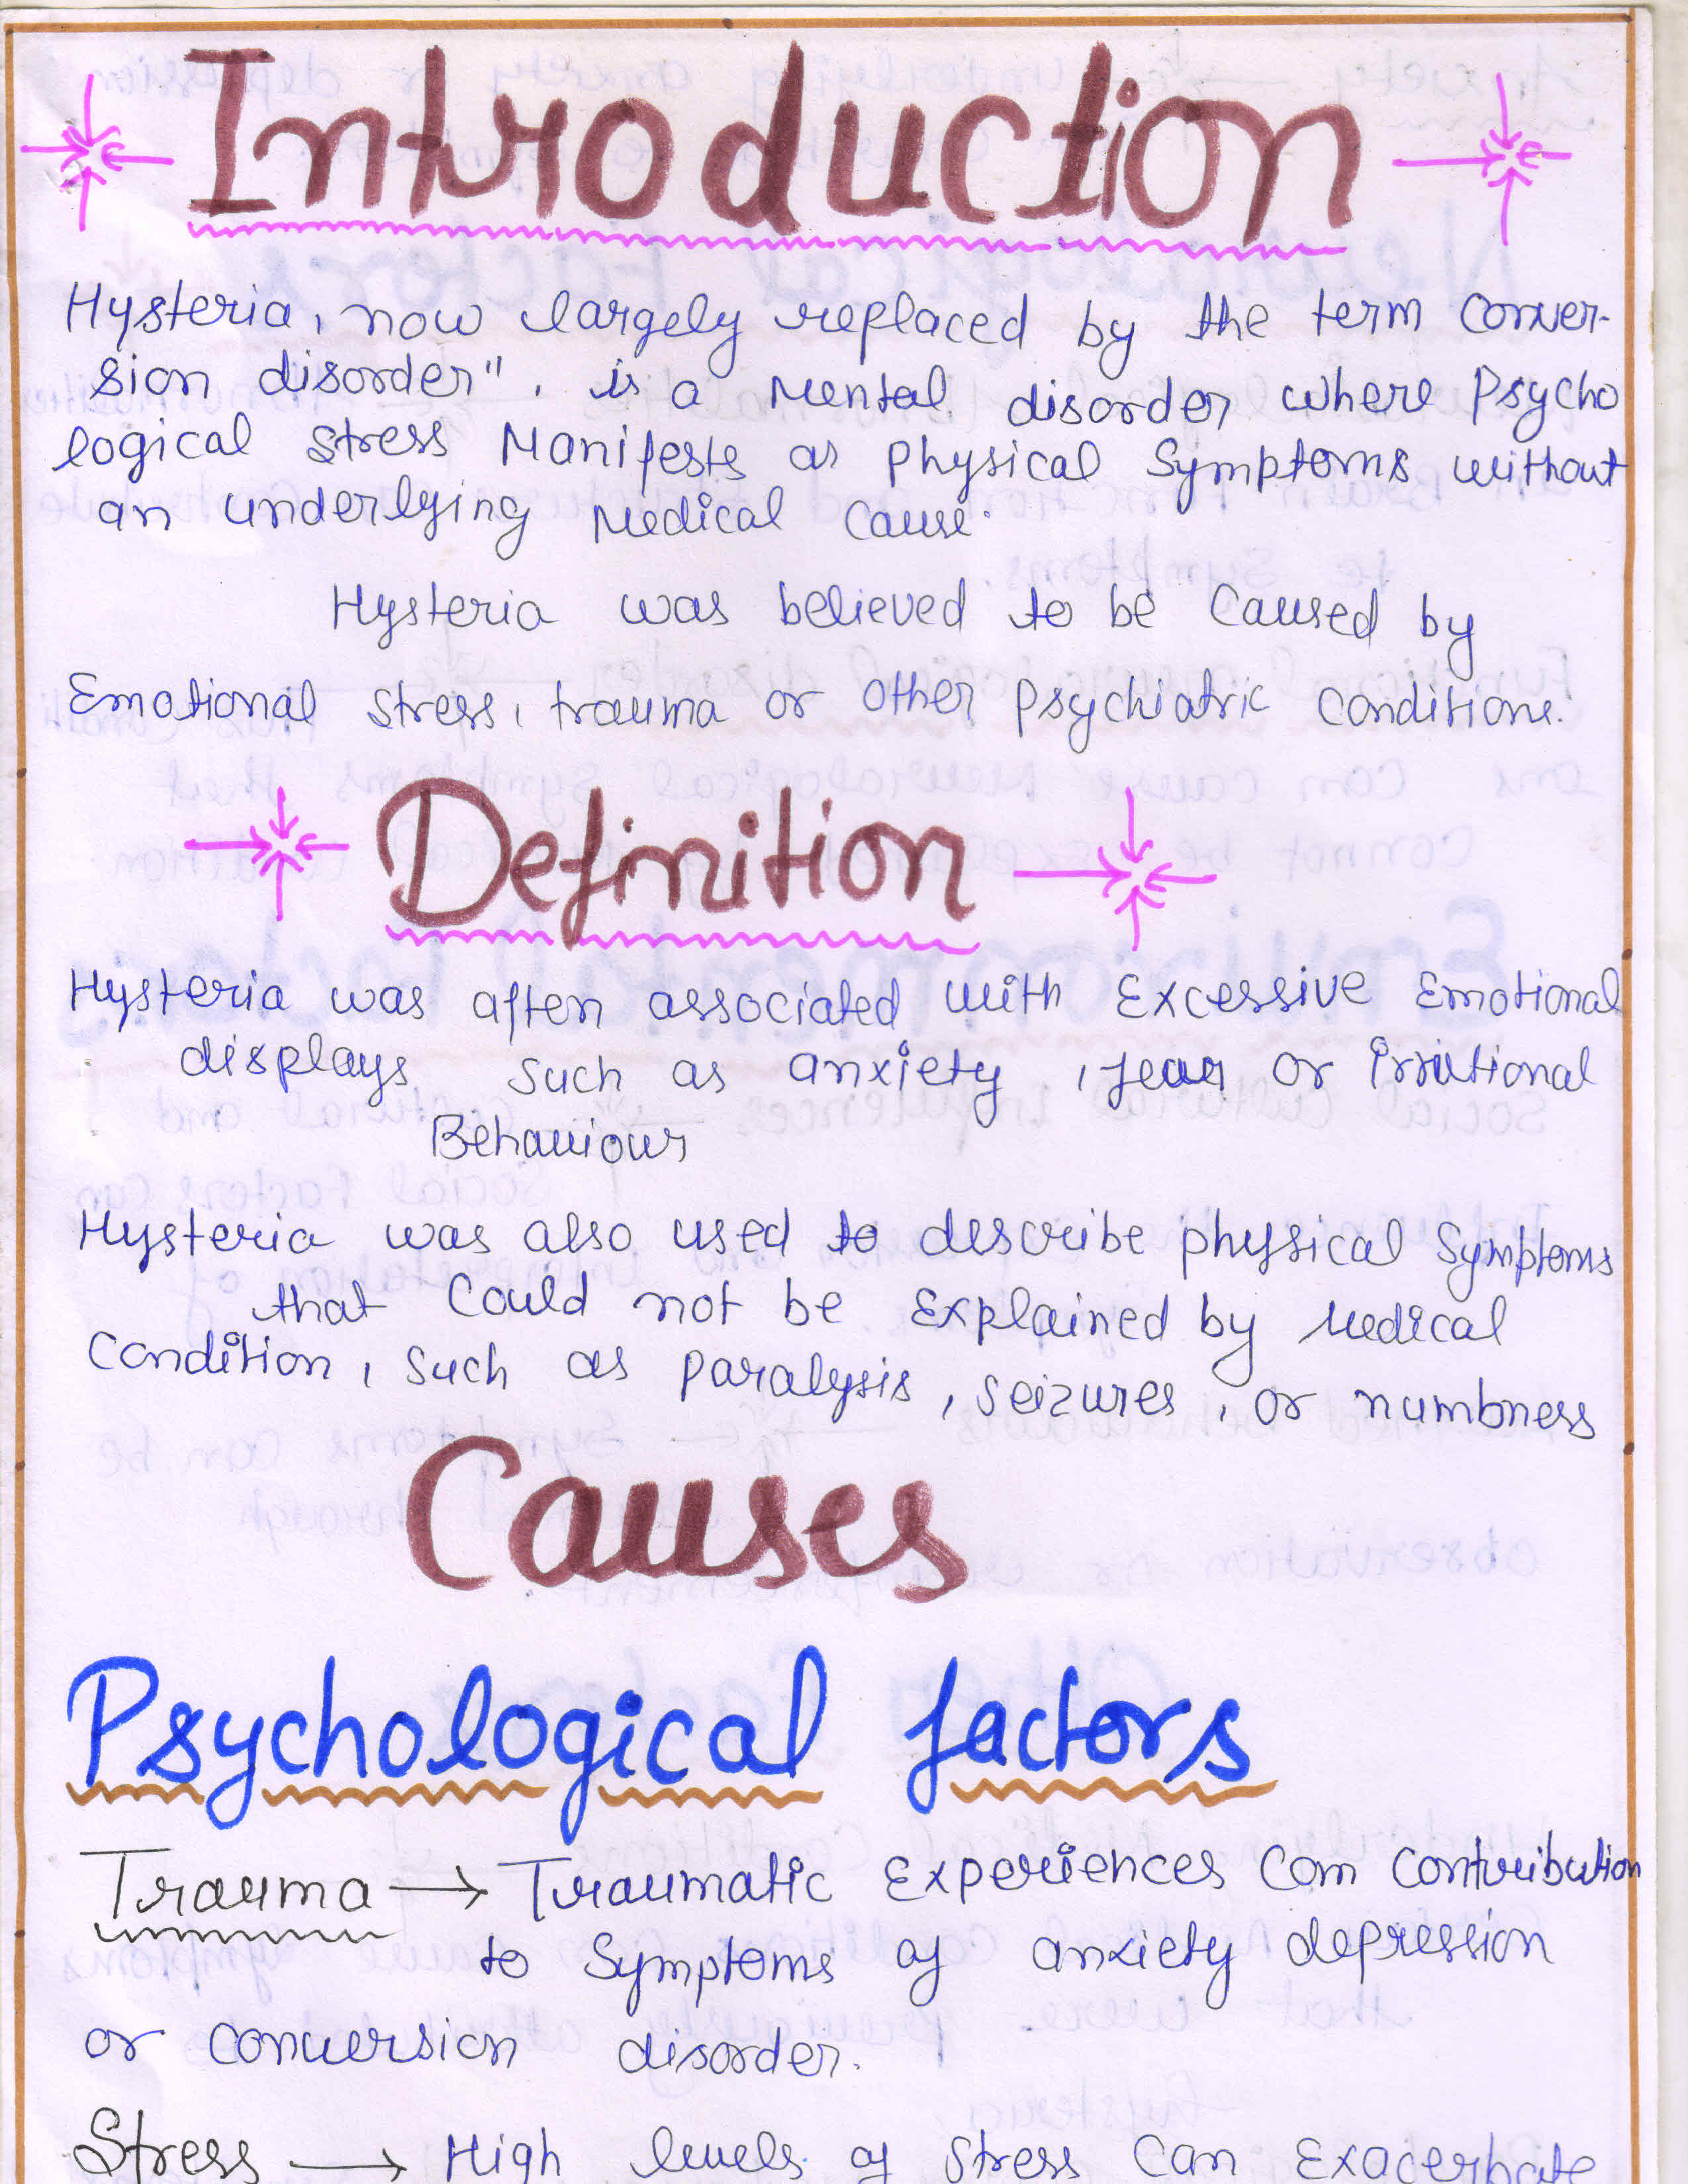 Introduction
Hysteria, now largely replaced by the term Conver-
sion disorder", is a Mental disorder where Psycho
logical stress Manifests as Physical Symptoms without
an underlying Medical Cause.
Hysteria was believed to be Caused by
Emotional stress, trauma or other Psychiatric Conditions.
Definition
Hysteria was often associated with Excessive Emotional
displays such as anxiety, fear or irrational
Behaviour
Hysteria was also used to describe physical Symptoms
that Could not be Explained by Medical
Condition, such as paralysis, seizures, or numbness
Causes
Psychological factors
Trauma → Traumatic Experiences Can Contribution
to Symptoms of anxiety depression
or conversion disorder.
Stress → High levels of stress Can Exacerbate